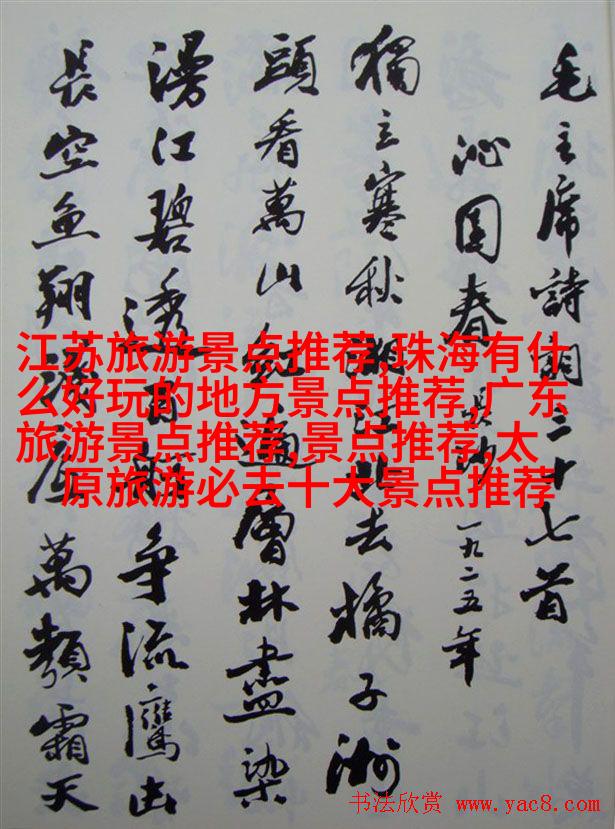 毛主席詩詞三十七首
沁園春 長沙 一九二五年
獨立寒秋湘江北去橘子洲
頭看萬山紅遍層林盡染
漫江碧透百舸争流鷹击
長空鱼翔淺底萬類霜天
江苏旅游景点推荐,珠海有什
么好玩的地方景点推荐,广东
旅游景点推荐,景点推荐,太
原旅游必去十大景点推荐
书法欣赏 www.yac8.com